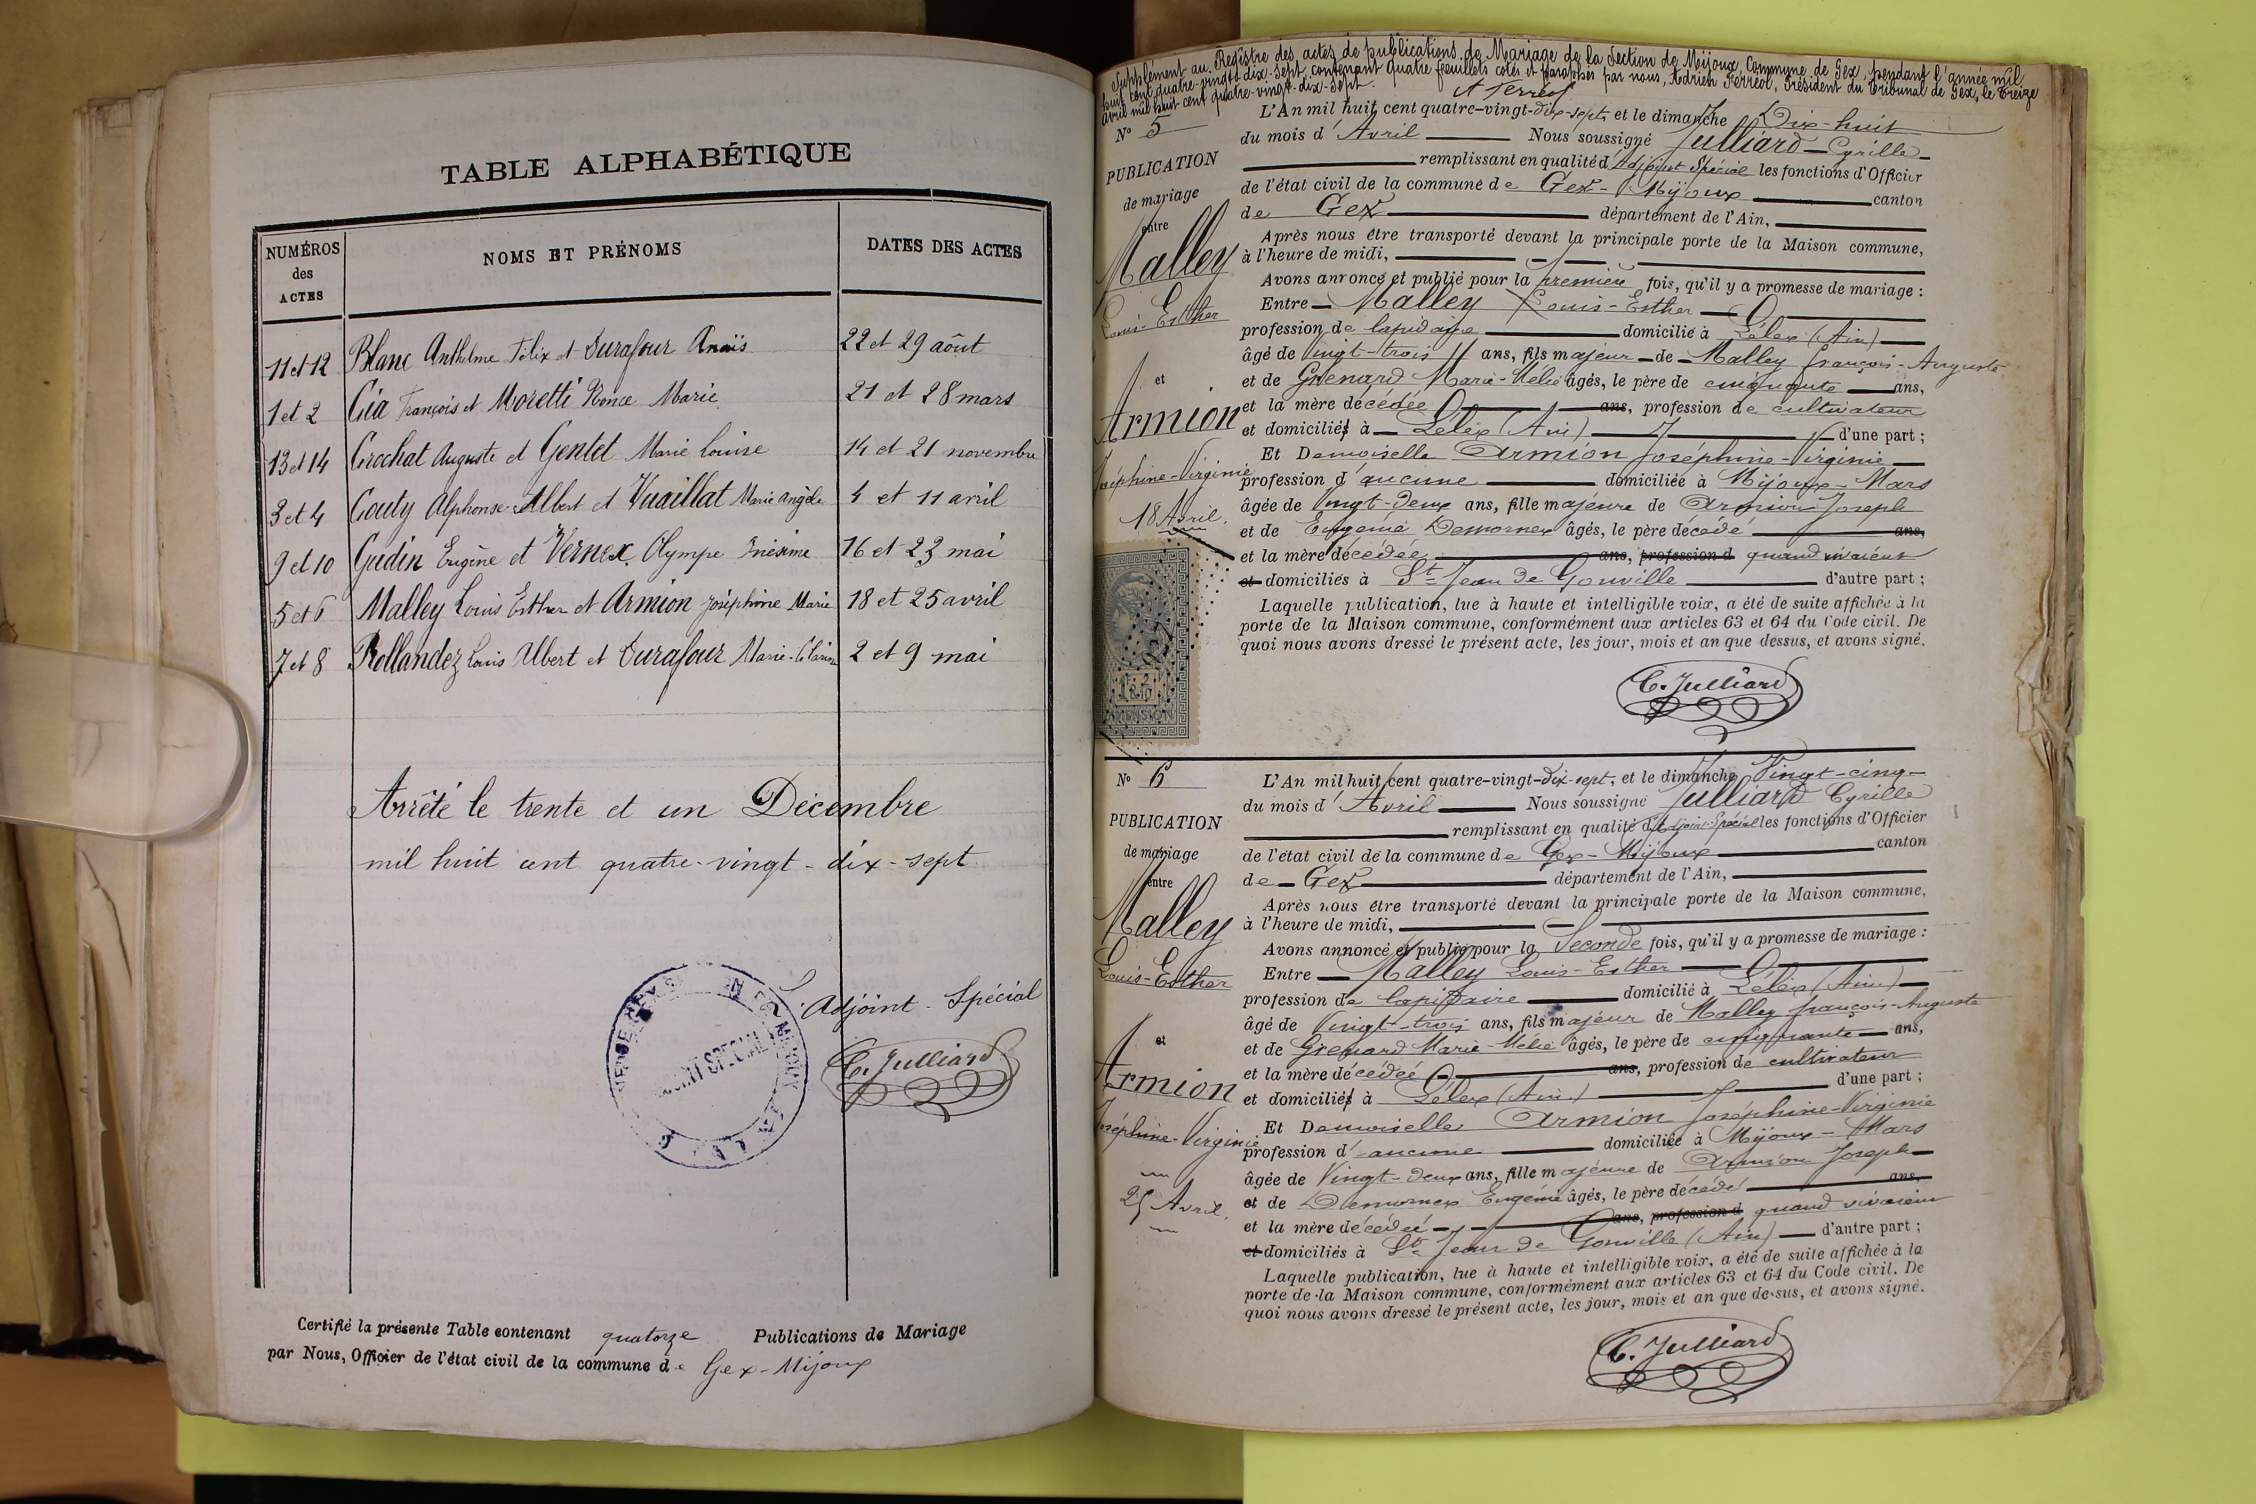 TABLE ALPHABÉTIQUE
NUMÉROS des ACTES
NOMS ET PRÉNOMS
DATES DES ACTES
11 et 12 Blanc Anthelme Félix et Durafour Anaïs 22 et 29 août
1 et 2 Cia François et Moretti Ronce Marie 21 et 28 mars
13 et 14 Crochat Auguste et Gentet Marie Louise 14 et 21 novembre
3 et 4 Gouty Alphonse Albert et Vuaillat Marie Angèle 4 et 11 avril
9 et 10 Gudin Eugène et Vernex Olympe Onésime 16 et 23 mai
5 et 6 Malley Louis Esther et Armion Joséphine Marie 18 et 25 avril
7 et 8 Rollandez Louis Albert et Durafour Marie 2 et 9 mai
Arrêté le trente et un Décembre
mil huit cent quatre-vingt-dix-sept
L'Adjoint-Spécial
C. Julliard
ADJOINT SPECIAL
Certifié la présente Table contenant quatorze Publications de Mariage
par Nous, Officier de l'état civil de la commune de Gex-Mijoux
Supplément au Registre des actes de publications de Mariage de la Section de Mijoux, Commune de Gex, pendant l'année mil
huit cent quatre-vingt-dix-sept, contenant quatre feuillets cotés et paraphés par nous, Adrien Ferréol, Président du Tribunal de Gex, le treize
avril mil huit cent quatre-vingt-dix-sept.
A Ferréol
N° 5
PUBLICATION
de mariage
entre
Malley
Louis-Esther
et
Armion
Joséphine-Virginie
18 Avril.
L'An mil huit cent quatre-vingt-dix-sept, et le dimanche Dix-huit
du mois d'Avril Nous soussigné Julliard Cyrille
remplissant en qualité d'Adjoint Spécial les fonctions d'Officier
de l'état civil de la commune de Gex-Mijoux canton
de Gex département de l'Ain,
Après nous être transporté devant la principale porte de la Maison commune,
à l'heure de midi,
Avons annoncé et publié pour la première fois, qu'il y a promesse de mariage :
Entre Malley Louis-Esther
profession de lapidaire domicilié à Lélex (Ain)
âgé de Vingt-trois ans, fils majeur de Malley françois-Auguste
et de Grenard Marie-Mélie âgés, le père de cinquante ans,
et la mère décédée ans, profession de cultivateur
et domiciliés à Lélex (Ain) d'une part ;
Et Demoiselle Armion Joséphine-Virginie
profession d'aucune domiciliée à Mijoux-Mars
âgée de Vingt-deux ans, fille majeure de Armion Joseph
et de Eugenie Demornex âgés, le père décédé ans,
et la mère décédée ans, profession d quand vivaient
et domiciliés à St Jean de Gonville d'autre part ;
Laquelle publication, lue à haute et intelligible voix, a été de suite affichée à la
porte de la Maison commune, conformément aux articles 63 et 64 du Code civil. De
quoi nous avons dressé le présent acte, les jour, mois et an que dessus, et avons signé.
C. Julliard
DIMENSION
N° 6
PUBLICATION
de mariage
entre
Malley
Louis-Esther
et
Armion
Joséphine-Virginie
25 Avril.
L'An mil huit cent quatre-vingt-dix-sept, et le dimanche Vingt-cinq
du mois d'Avril Nous soussigné Julliard Cyrille
remplissant en qualité d'Adjoint-Spécial les fonctions d'Officier
de l'état civil de la commune de Gex-Mijoux canton
de Gex département de l'Ain,
Après nous être transporté devant la principale porte de la Maison commune,
à l'heure de midi,
Avons annoncé et publié pour la Seconde fois, qu'il y a promesse de mariage :
Entre Malley Louis-Esther
profession de lapidaire domicilié à Lélex (Ain)
âgé de Vingt-trois ans, fils majeur de Malley françois-Auguste
et de Grenard Marie-Mélie âgés, le père de cinquante ans,
et la mère décédée ans, profession de cultivateur
et domiciliés à Lélex (Ain) d'une part ;
Et Demoiselle Armion Joséphine-Virginie
profession d'aucune domiciliée à Mijoux-Mars
âgée de Vingt-deux ans, fille majeure de Armion Joseph
et de Demornex Eugénie âgés, le père décédé ans,
et la mère décédée ans, profession d quand vivaient
et domiciliés à St Jean de Gonville (Ain) d'autre part ;
Laquelle publication, lue à haute et intelligible voix, a été de suite affichée à la
porte de la Maison commune, conformément aux articles 63 et 64 du Code civil. De
quoi nous avons dressé le présent acte, les jour, mois et an que dessus, et avons signé.
C. Julliard